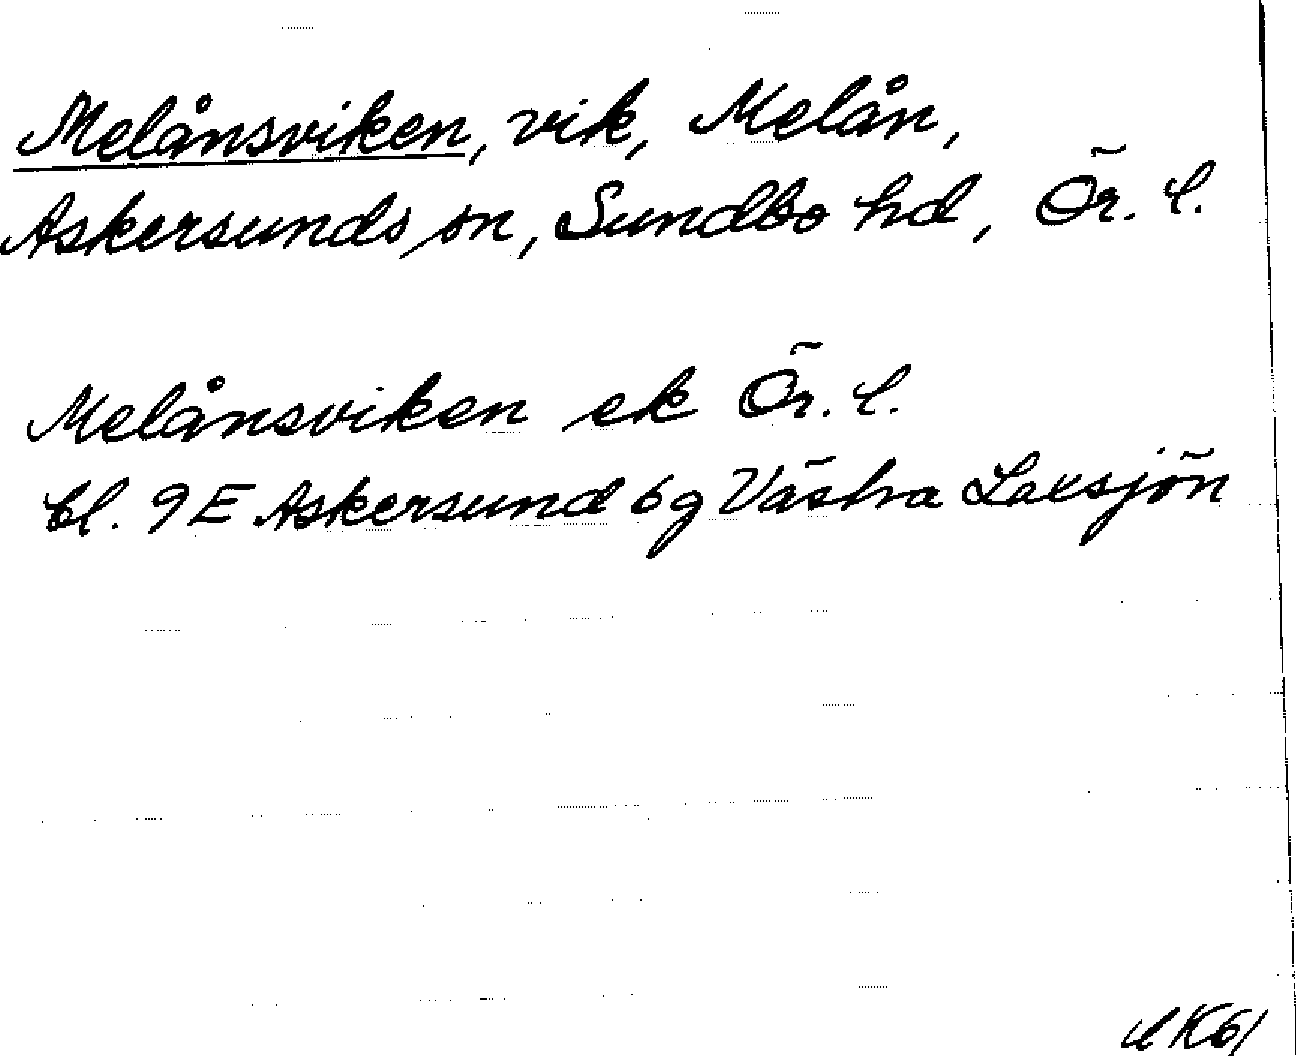 Melånsviken, vik, Melån,
Askersunds sn, Sundbo hd, Ör. l.
Melånsviken ek Ör. l.
bl. 9E Askersund 6g Västra Laxsjön